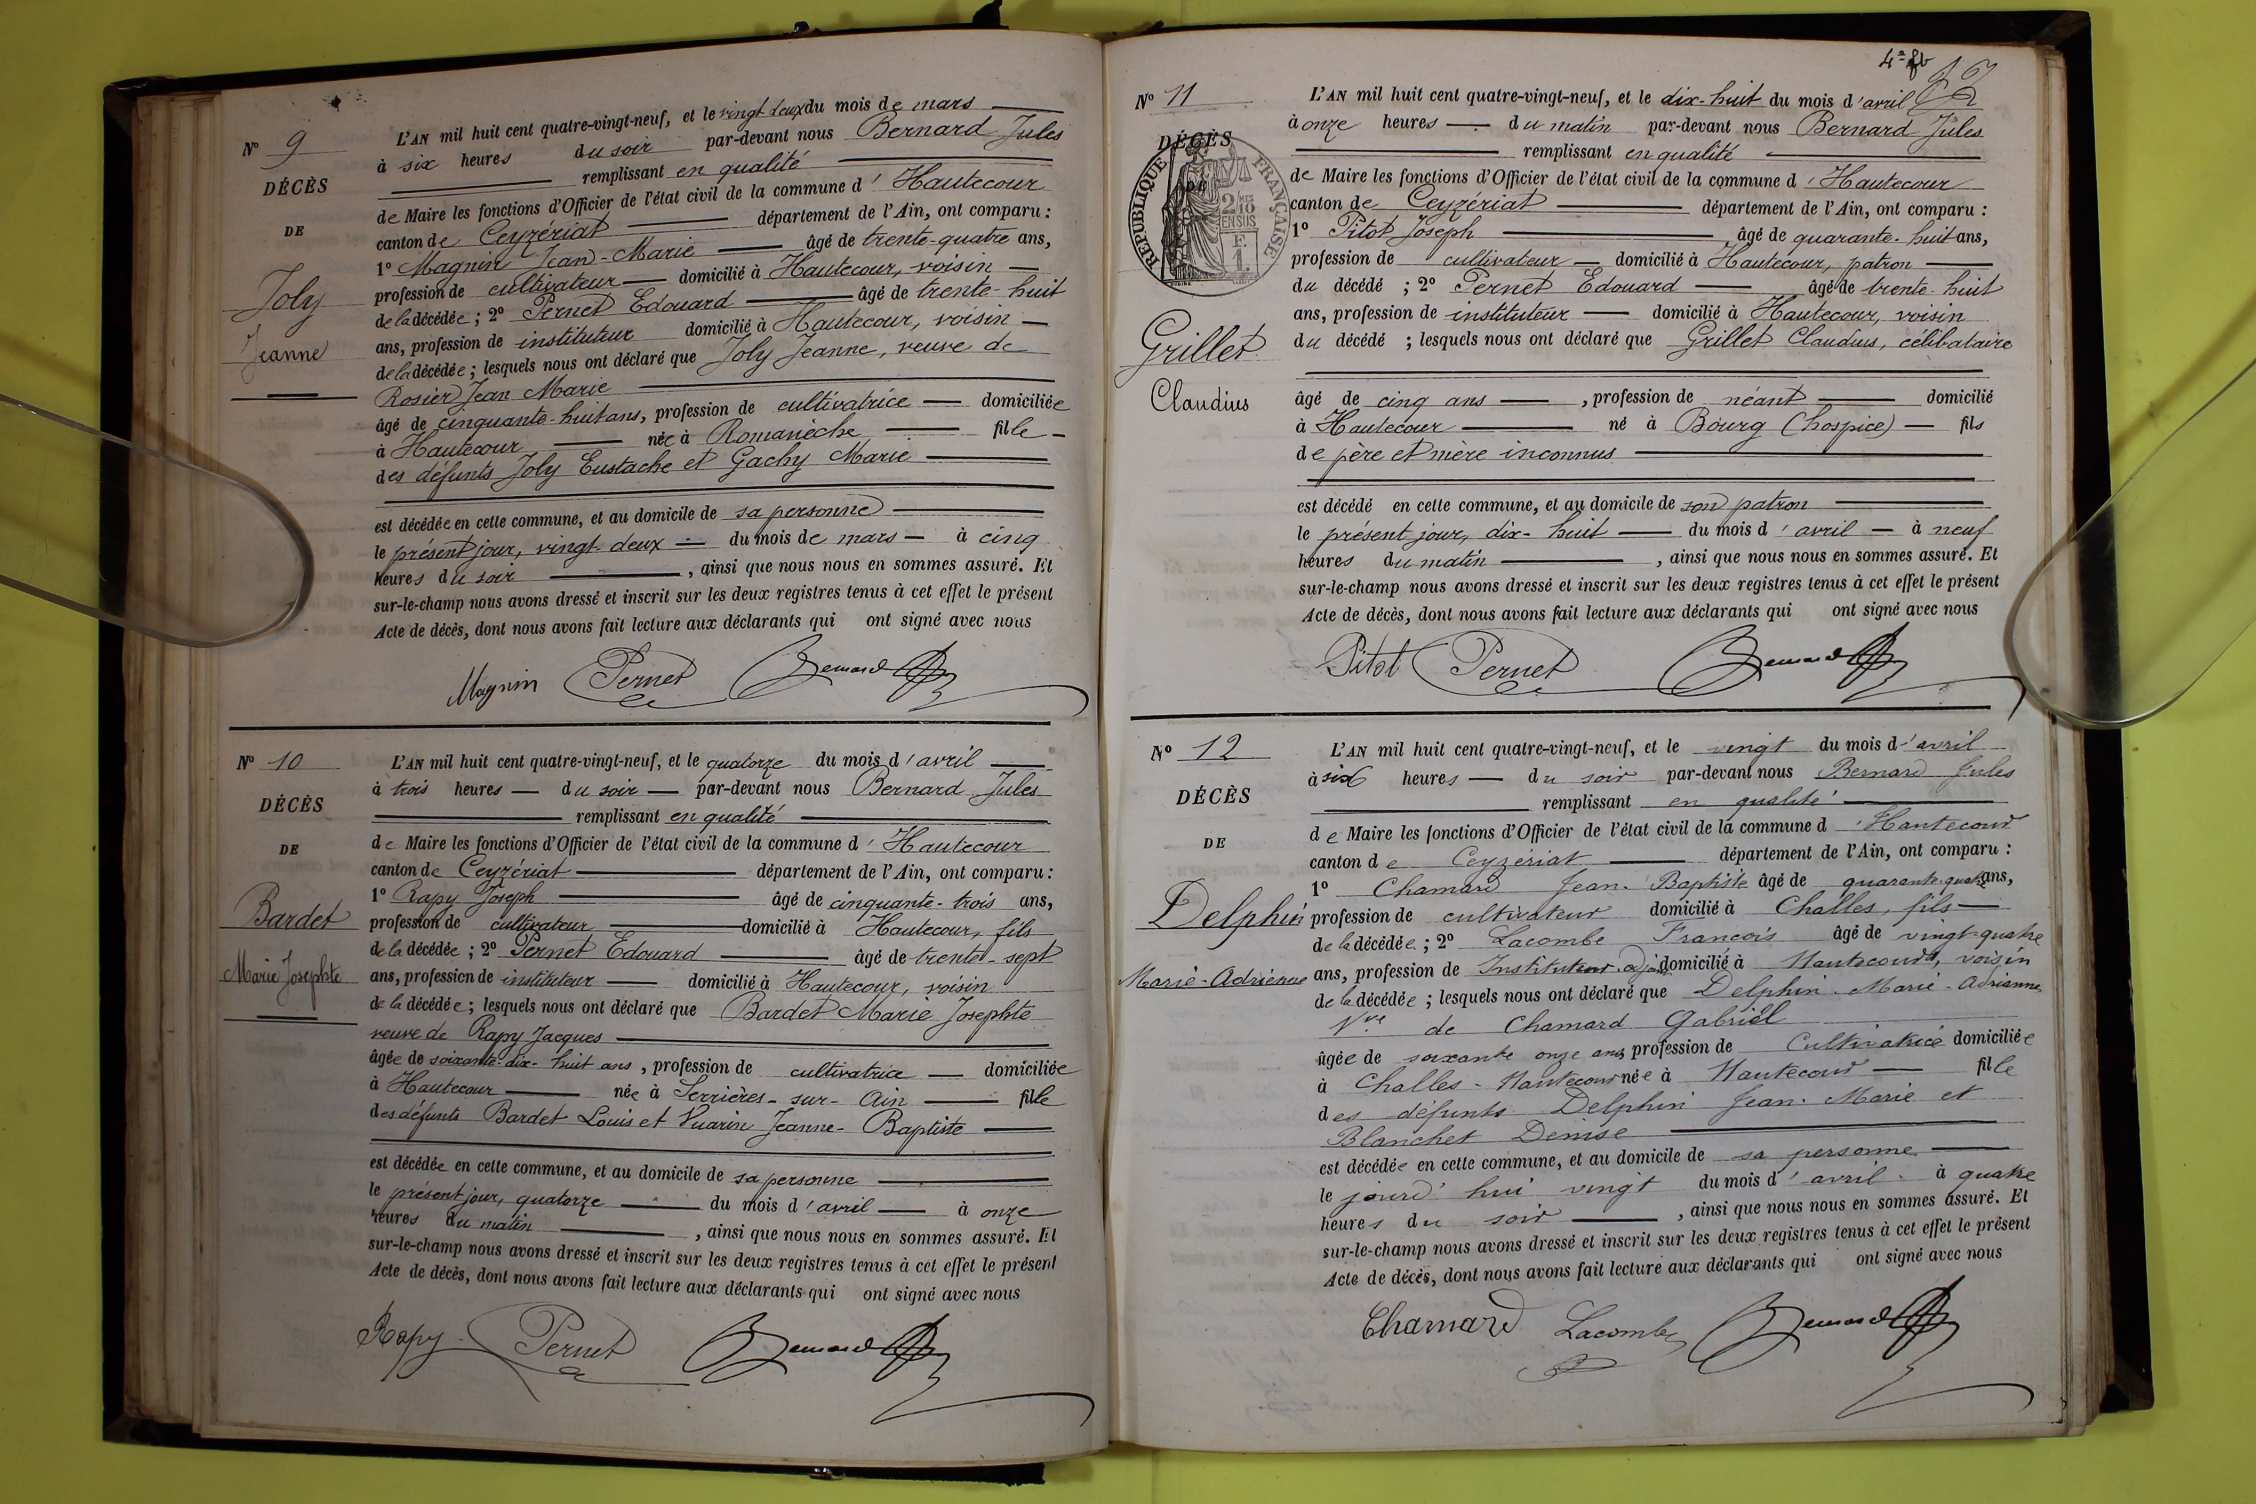 Nº 9
DÉCÈS
DE
Joly
Jeanne
L'AN mil huit cent quatre-vingt-neuf, et le vingt deux du mois de mars
à six heures du soir par-devant nous Bernard Jules
remplissant en qualité
de Maire les fonctions d'Officier de l'état civil de la commune d'Hautecour
canton de Ceyzériat département de l'Ain, ont comparu :
1º Magnin Jean-Marie âgé de trente-quatre ans,
profession de cultivateur domicilié à Hautecour, voisin
de la décédée ; 2º Pernet Edouard âgé de trente-huit
ans, profession de instituteur domicilié à Hautecour, voisin
de la décédée ; lesquels nous ont déclaré que Joly Jeanne, veuve de
Rosier Jean Marie
âgé de cinquante-huit ans, profession de cultivatrice domiciliée
à Hautecour née à Romanèche fille
des défunts Joly Eustache et Gachy Marie
est décédée en cette commune, et au domicile de sa personne
le présent jour, vingt-deux du mois de mars à cinq
heures du soir , ainsi que nous nous en sommes assuré. Et
sur-le-champ nous avons dressé et inscrit sur les deux registres tenus à cet effet le présent
Acte de décès, dont nous avons fait lecture aux déclarants qui ont signé avec nous
Magnin Pernet Bernard
Nº 10
DÉCÈS
DE
Bardet
Marie Josephte
L'AN mil huit cent quatre-vingt-neuf, et le quatorze du mois d'avril
à trois heures du soir par-devant nous Bernard Jules
remplissant en qualité
de Maire les fonctions d'Officier de l'état civil de la commune d'Hautecour
canton de Ceyzériat département de l'Ain, ont comparu :
1º Rapy Joseph âgé de cinquante-trois ans,
profession de cultivateur domicilié à Hautecour, fils
de la décédée ; 2º Pernet Edouard âgé de trente-sept
ans, profession de instituteur domicilié à Hautecour, voisin
de la décédée ; lesquels nous ont déclaré que Bardet Marie Josephte
veuve de Rapy Jacques
âgée de soixante-dix-huit ans, profession de cultivatrice domiciliée
à Hautecour née à Serrières-sur-Ain fille
des défunts Bardet Louis et Vuarin Jeanne-Baptiste
est décédée en cette commune, et au domicile de sa personne
le présent jour, quatorze du mois d'avril à onze
heures du matin , ainsi que nous nous en sommes assuré. Et
sur-le-champ nous avons dressé et inscrit sur les deux registres tenus à cet effet le présent
Acte de décès, dont nous avons fait lecture aux déclarants qui ont signé avec nous
Rapy Pernet Bernard
Nº 11
DÉCÈS
DE
RÉPUBLIQUE FRANÇAISE
2/10 EN SUS
F. 1.
Grillet
Claudius
L'AN mil huit cent quatre-vingt-neuf, et le dix-huit du mois d'avril
à onze heures du matin par-devant nous Bernard Jules
remplissant en qualité
de Maire les fonctions d'Officier de l'état civil de la commune d'Hautecour
canton de Ceyzériat département de l'Ain, ont comparu :
1º Pitot Joseph âgé de quarante-huit ans,
profession de cultivateur domicilié à Hautecour, patron
du décédé ; 2º Pernet Edouard âgé de trente-huit
ans, profession de instituteur domicilié à Hautecour, voisin
du décédé ; lesquels nous ont déclaré que Grillet Claudius, célibataire
âgé de cinq ans , profession de néant domicilié
à Hautecour né à Bourg (hospice) fils
de père et mère inconnus
est décédé en cette commune, et au domicile de son patron
le présent jour, dix-huit du mois d'avril à neuf
heures du matin , ainsi que nous nous en sommes assuré. Et
sur-le-champ nous avons dressé et inscrit sur les deux registres tenus à cet effet le présent
Acte de décès, dont nous avons fait lecture aux déclarants qui ont signé avec nous
Pitot Pernet Bernard
Nº 12
DÉCÈS
DE
Delphin
Marie-Adrienne
L'AN mil huit cent quatre-vingt-neuf, et le vingt du mois d'avril
à six heures du soir par-devant nous Bernard Jules
remplissant en qualité
de Maire les fonctions d'Officier de l'état civil de la commune d'Hautecour
canton de Ceyzériat département de l'Ain, ont comparu :
1º Chamard Jean-Baptiste âgé de quarante-quatre ans,
profession de cultivateur domicilié à Challes, fils
de la décédée ; 2º Lacombe François âgé de vingt-quatre
ans, profession de Instituteur adjt domicilié à Hautecour, voisin
de la décédée ; lesquels nous ont déclaré que Delphin Marie-Adrienne
Vve de Chamard Gabriel
âgée de soixante onze ans, profession de Cultivatrice domiciliée
à Challes-Hautecour née à Hautecour fille
des défunts Delphin Jean-Marie et
Blanchet Denise
est décédée en cette commune, et au domicile de sa personne
le jourd'hui vingt du mois d'avril à quatre
heures du soir , ainsi que nous nous en sommes assuré. Et
sur-le-champ nous avons dressé et inscrit sur les deux registres tenus à cet effet le présent
Acte de décès, dont nous avons fait lecture aux déclarants qui ont signé avec nous
Chamard Lacombe Bernard